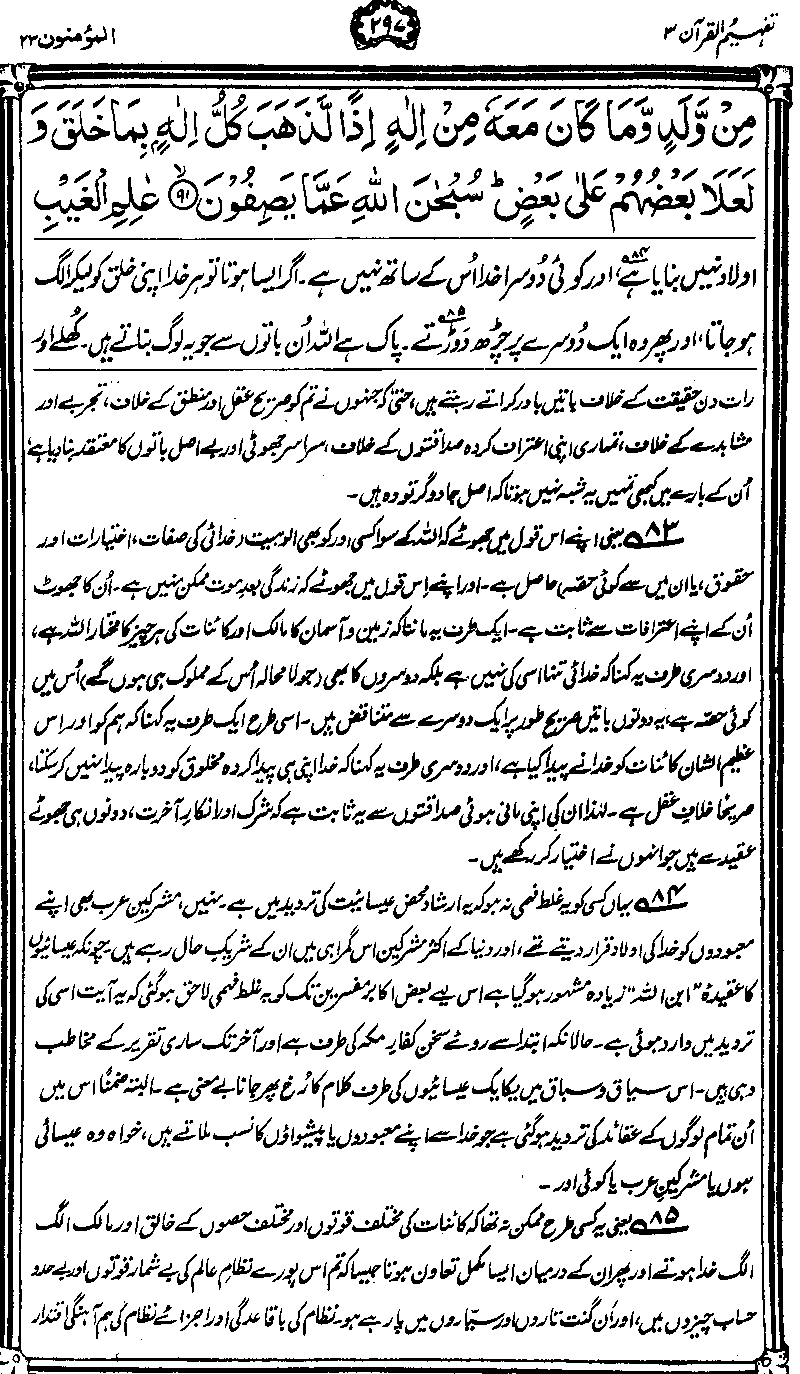 تفہیم القرآن ۳
۲۹۷
المؤمنون ۲۳
مِنْ وَّلَدٍ وَّمَا كَانَ مَعَهٗ مِنْ اِلٰهٍ اِذًا لَّذَهَبَ كُلُّ اِلٰهٍۭ بِمَا خَلَقَ وَ
لَعَلَا بَعْضُهُمْ عَلٰى بَعْضٍ ؕ سُبْحٰنَ اللّٰهِ عَمَّا يَصِفُوْنَ ﴿۹۱﴾ عٰلِمِ الْغَيْبِ
اولاد نہیں بنایا ہے،۸۴ اور کوئی دُوسرا خدا اُس کے ساتھ نہیں ہے۔ اگر ایسا ہوتا تو ہر خدا اپنی خلق کو لیکر الگ
ہو جاتا، اور پھر وہ ایک دُوسرے پر چڑھ دَوڑتے۔۸۵ پاک ہے اللہ اُن باتوں سے جو یہ لوگ بناتے ہیں۔ کُھلے اور
رات دن حقیقت کے خلاف باتیں باور کراتے رہتے ہیں، حتیٰ کہ جنہوں نے تم کو صریح عقل اور منطق کے خلاف، تجربے اور
مشاہدے کے خلاف، تمہاری اپنی اعتراف کردہ صداقتوں کے خلاف، سراسر جھوٹی اور بے اصل باتوں کا معتقد بنا دیا ہے،
اُن کے بارے میں کبھی تمہیں یہ شبہ نہیں ہوتا کہ اصل جادوگر تو وہ ہیں۔
۸۳ یعنی اپنے اس قول میں جھوٹے کہ اللہ کے سوا کسی اور کو بھی الوہیت (خدائی کی صفات، اختیارات اور
حقوق، یا ان میں سے کوئی حصہ) حاصل ہے۔ اور اپنے اِس قول میں جھوٹے کہ زندگی بعد موت ممکن نہیں ہے۔ اُن کا جھوٹ
اُن کے اپنے اعترافات سے ثابت ہے۔ ایک طرف یہ ماننا کہ زمین و آسمان کا مالک اور کائنات کی ہر چیز کا مختار اللہ ہے،
اور دوسری طرف یہ کہنا کہ خدائی تنہا اسی کی نہیں ہے بلکہ دوسروں کا بھی (جو لامحالہ اُس کے مملوک ہی ہوں گے) اُس میں
کوئی حصہ ہے، یہ دونوں باتیں صریح طور پر ایک دوسرے سے متناقض ہیں۔ اسی طرح ایک طرف یہ کہنا کہ ہم کو اور اس
عظیم الشان کائنات کو خدا نے پیدا کیا ہے، اور دوسری طرف یہ کہنا کہ خدا اپنی ہی پیدا کردہ مخلوق کو دوبارہ پیدا نہیں کر سکتا،
صریحًا خلافِ عقل ہے۔ لہٰذا ان کی اپنی مانی ہوئی صداقتوں سے یہ ثابت ہے کہ شرک اور انکارِ آخرت، دونوں ہی جھوٹے
عقیدے ہیں جو انہوں نے اختیار کر رکھے ہیں۔
۸۴ یہاں کسی کو یہ غلط فہمی نہ ہو کہ یہ ارشاد محض عیسائیت کی تردید میں ہے۔ نہیں، مشرکین عرب بھی اپنے
معبودوں کو خدا کی اولاد قرار دیتے تھے، اور دنیا کے اکثر مشرکین اس گمراہی میں ان کے شریکِ حال رہے ہیں۔ چونکہ عیسائیوں
کا عقیدۂ "ابن اللہ" زیادہ مشہور ہو گیا ہے اس لیے بعض اکابر مفسرین تک کو یہ غلط فہمی لاحق ہو گئی کہ یہ آیت اسی کی
تردید میں وارد ہوئی ہے۔ حالانکہ ابتدا سے روئے سخن کفارِ مکہ کی طرف ہے اور آخر تک ساری تقریر کے مخاطب
وہی ہیں۔ اس سیاق و سباق میں یکایک عیسائیوں کی طرف کلام کا رُخ پھر جانا بے معنی ہے۔ البتہ ضمنًا اس میں
اُن تمام لوگوں کے عقائد کی تردید ہو گئی ہے جو خدا سے اپنے معبودوں یا پیشواؤں کا نسب ملاتے ہیں، خواہ وہ عیسائی
ہوں یا مشرکینِ عرب یا کوئی اور۔
۸۵ یعنی یہ کسی طرح ممکن نہ تھا کہ کائنات کی مختلف قوتوں اور مختلف حصوں کے خالق اور مالک الگ
الگ خدا ہوتے اور پھر ان کے درمیان ایسا مکمل تعاون ہوتا جیسا کہ تم اس پورے نظامِ عالم کی بے شمار قوتوں اور بے حدو
حساب چیزوں میں، اور اَن گنت تاروں اور سیّاروں میں پا رہے ہو۔ نظام کی باقاعدگی اور اجزائے نظام کی ہم آہنگی اقتدار